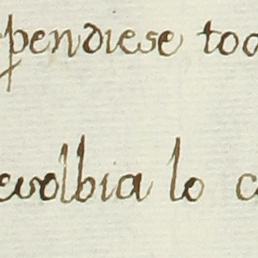 pendiese tod
evolbia lo c